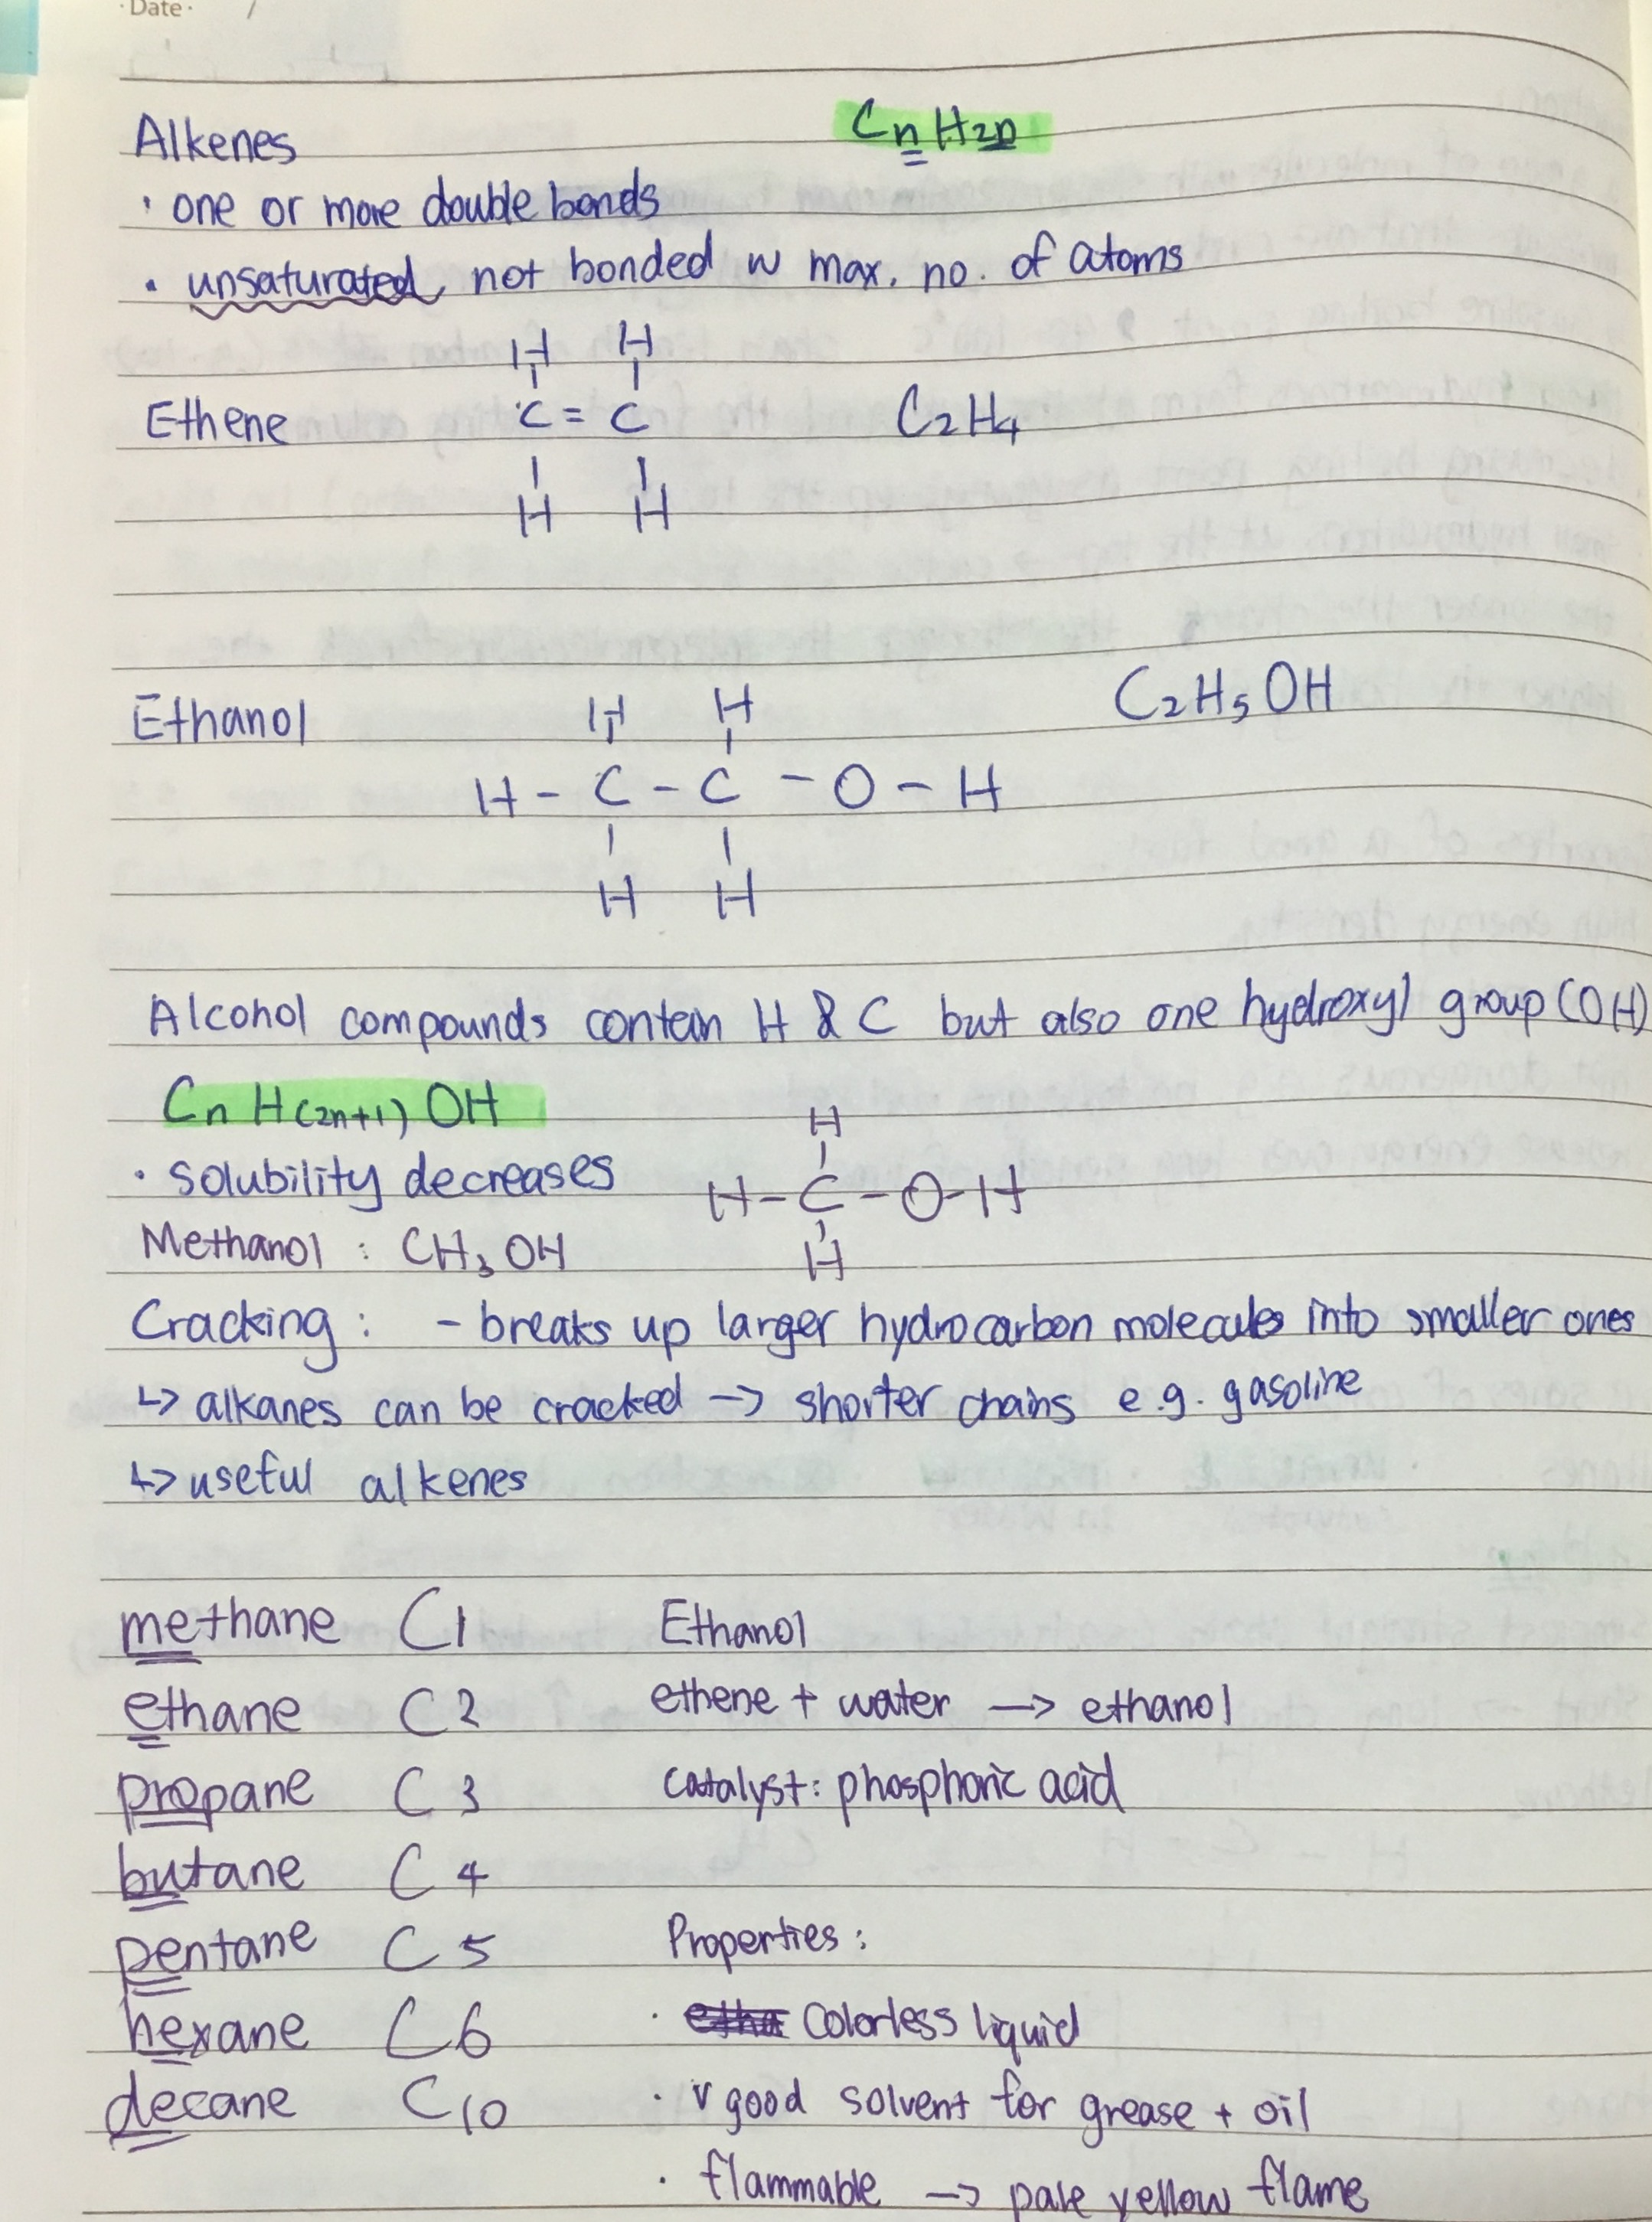 Date /
Alkenes CnH2n
· one or more double bonds
· unsaturated, not bonded w max. no. of atoms
H H
Ethene C = C C2H4
H H
Ethanol H H C2H5OH
H - C - C - O - H
H H
Alcohol compounds contain H & C but also one hydroxyl group (OH)
CnH(2n+1) OH
H
· solubility decreases H-C-O-H
Methanol : CH3OH H
Cracking : - breaks up larger hydrocarbon molecules into smaller ones
↳ alkanes can be cracked -> shorter chains e.g. gasoline
↳ useful alkenes
methane C1 Ethanol
ethane C2 ethene + water -> ethanol
propane C3 catalyst: phosphoric acid
butane C4
pentane C5 Properties :
hexane C6 · colorless liquid
decane C10 · v good solvent for grease + oil
· flammable -> pale yellow flame